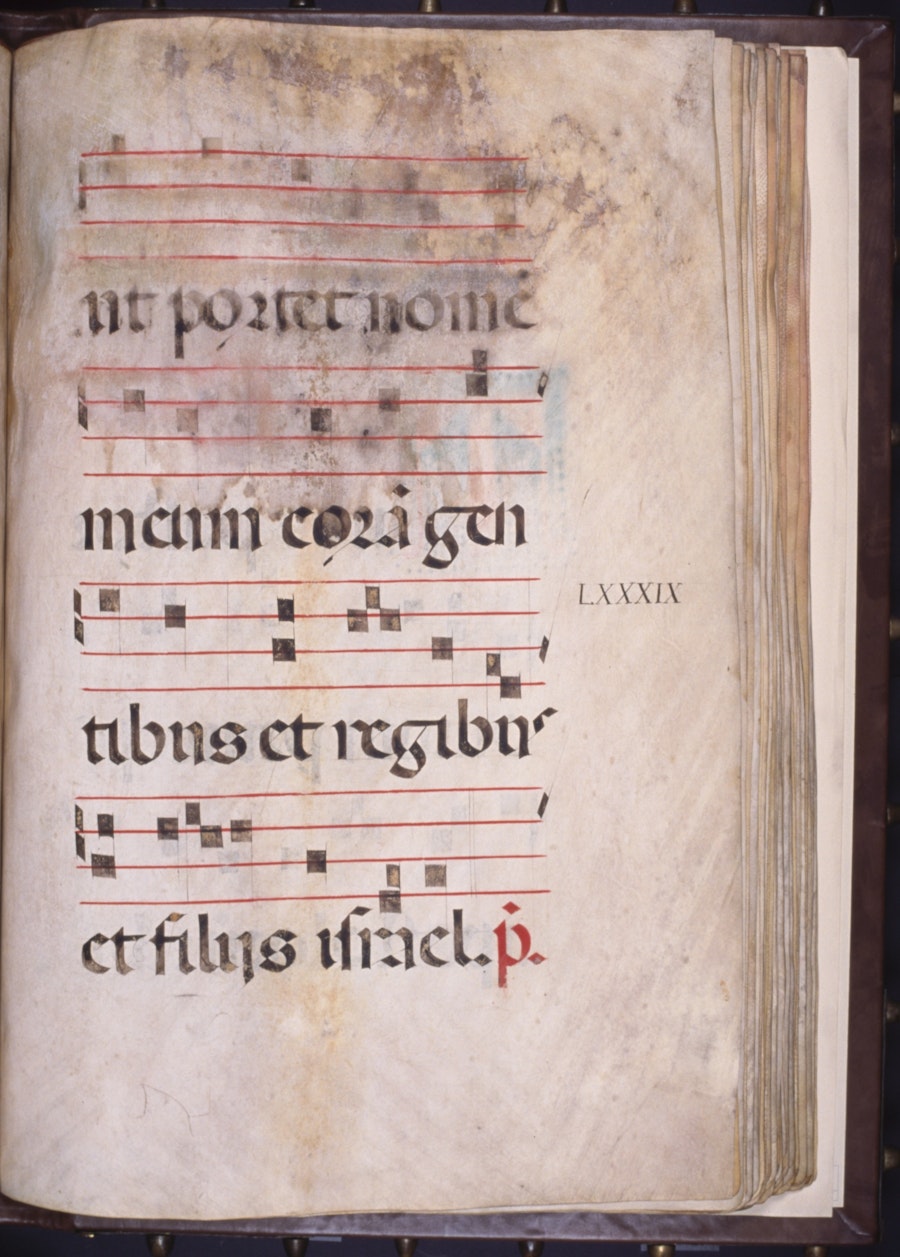 ut portet nomē
meum corā gen
LXXXIX
tibus et regibus
et filijs israel. p̄.